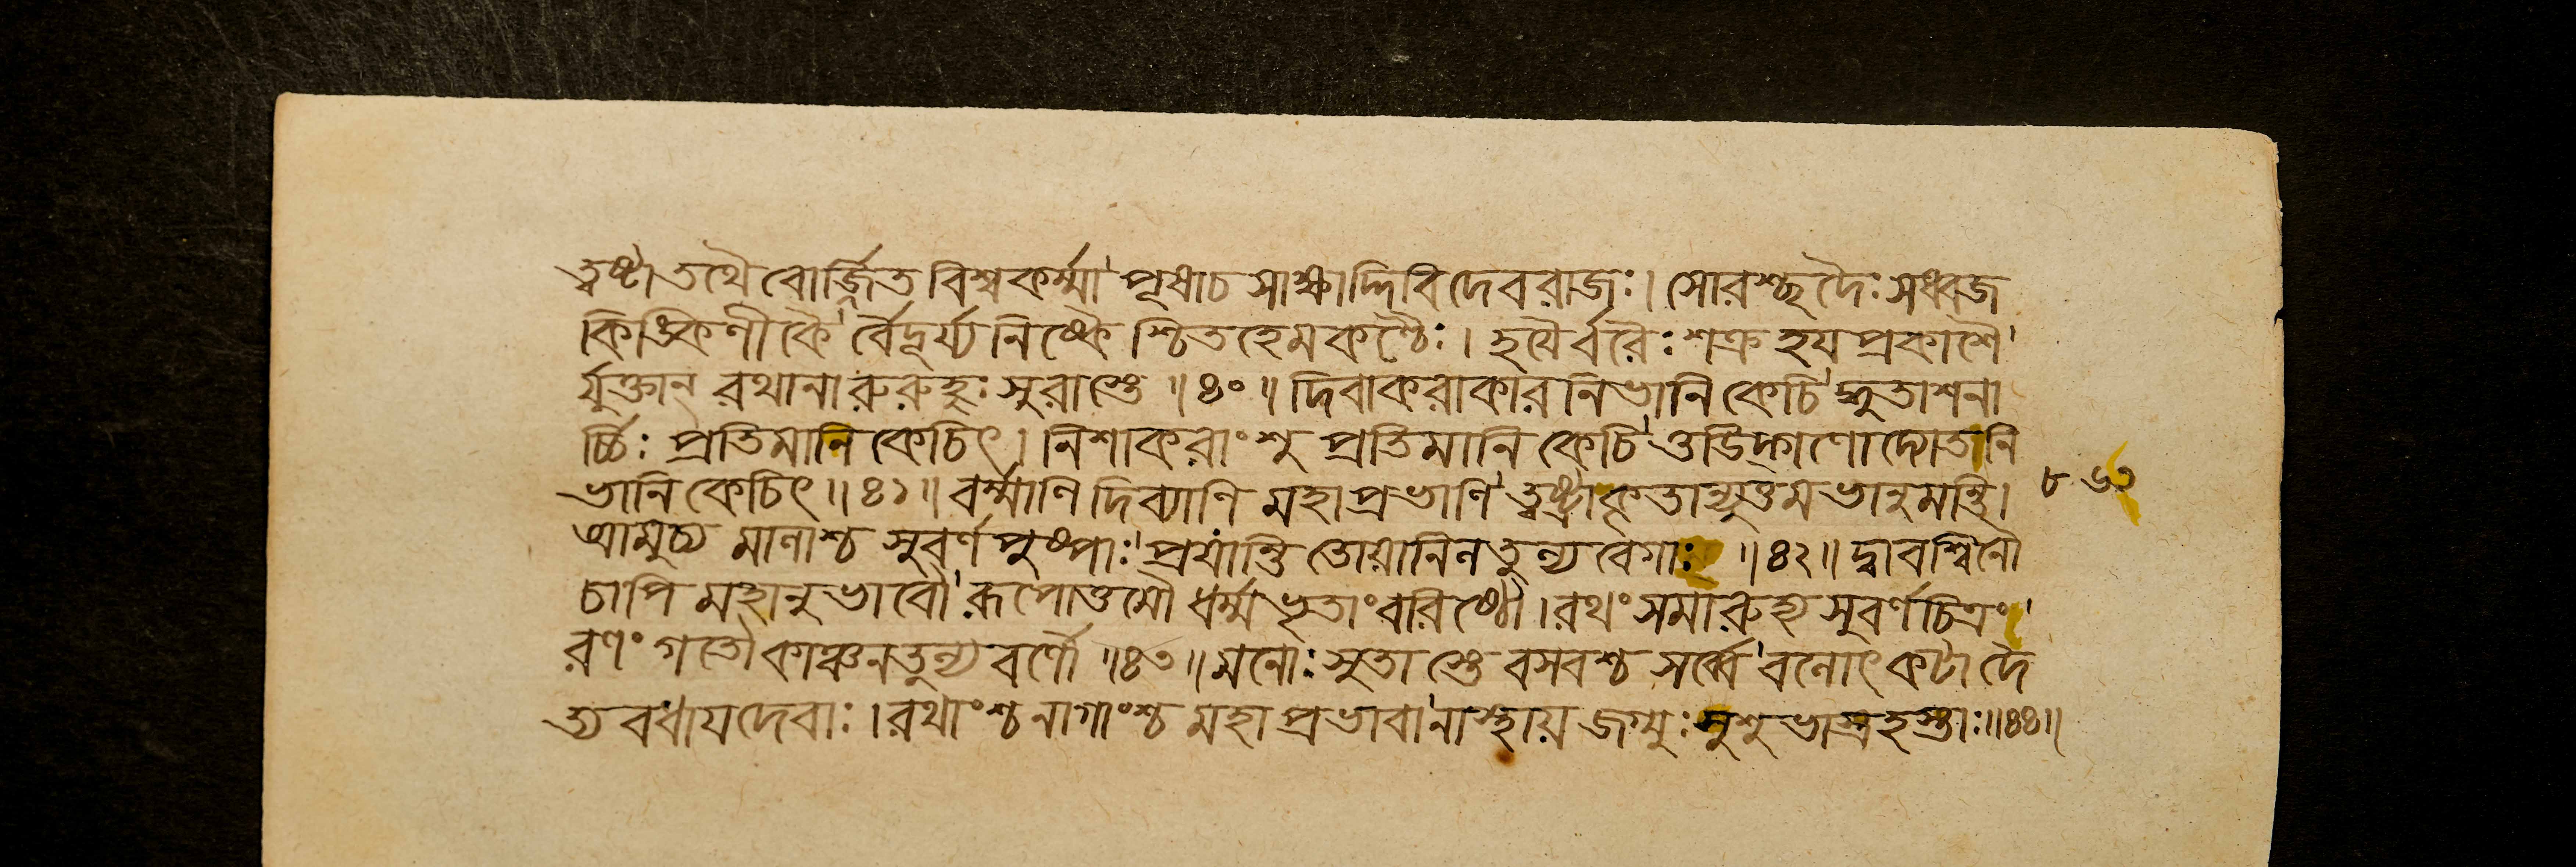 ত্বষ্টা তথৈবোর্জ্জিত বিশ্বকর্ম্মা পূষাচ সাক্ষাদ্দিবিদেবরাজঃ। সোরশ্ছদৈঃ সধ্বজ
কিঙ্কিণীকৈ র্বৈদূর্য্যনিষ্কৈ শ্চিতহেমকণ্ঠৈঃ। হয়ৈর্বরৈঃ শত্রু হয প্রকাশৈ
র্যুক্তান্ রথানারুরুহুঃ সুরাস্তে ॥ ৪০ ॥ দিবাকরাকার নিভানি কেচি দ্ধুতাশনা
র্চ্চিঃ প্রতিমানি কেচিৎ। নিশাকরাংশু প্রতিমানি কেচি ত্তডিদ্গণোদ্যোতনি
ভানি কেচিৎ ॥ ৪১ ॥ বর্ম্মাণি দিব্যাণি মহাপ্রভাণি ত্বষ্ট্রাকৃতান্যুত্তম ভানুমন্তি।
আমুচ্য মাণাশ্চ সুবর্ণ পুষ্পাঃ প্রযান্তি তোয়ানিনতুল্য বেগাঃ ॥ ৪২ ॥ দ্বাবশ্বিনৌ
চাপি মহানুভাবৌ রূপোত্তমৌ ধর্ম্মভৃতাংবরিষ্ঠৌ। রথং সমারুহ্য সুবর্ণচিত্রং
রণং গতৌ কাঞ্চনতুল্য বর্ণৌ ॥ ৪৩ ॥ মনোঃ সুতাস্তে বসবশ্চ সর্ব্বে বলোৎকটা দৈ
ত্য বধায দেবাঃ। রথাংশ্চ নাগাংশ্চ মহাপ্রভাবানাস্থায় জগ্মুঃ সুশুভাস্ত্রহস্তাঃ ॥ ৪৪ ॥